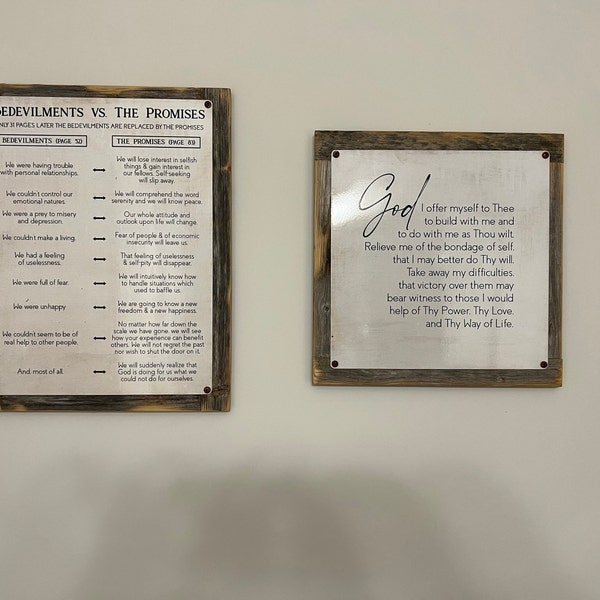 BEDEVILMENTS VS. THE PROMISES
ONLY 31 PAGES LATER THE BEDEVILMENTS ARE REPLACED BY THE PROMISES
BEDEVILMENTS (PAGE 52)
THE PROMISES (PAGE 83)
We were having trouble
with personal relationships.
We will lose interest in selfish
things & gain interest in
our fellows. Self-seeking
will slip away.
We couldn't control our
emotional natures.
We will comprehend the word
serenity and we will know peace.
We were a prey to misery
and depression.
Our whole attitude and
outlook upon life will change.
We couldn't make a living.
Fear of people & of economic
insecurity will leave us.
We had a feeling
of uselessness.
That feeling of uselessness
& self-pity will disappear.
We were full of fear.
We will intuitively know how
to handle situations which
used to baffle us.
We were unhappy
We are going to know a new
freedom & a new happiness.
We couldn't seem to be of
real help to other people.
No matter how far down the
scale we have gone, we will see
how your experience can benefit
others. We will not regret the past
nor wish to shut the door on it.
And, most of all,
We will suddenly realize that
God is doing for us what we
could not do for ourselves.
God I offer myself to Thee
to build with me and
to do with me as Thou wilt.
Relieve me of the bondage of self,
that I may better do Thy will.
Take away my difficulties,
that victory over them may
bear witness to those I would
help of Thy Power, Thy Love,
and Thy Way of Life.